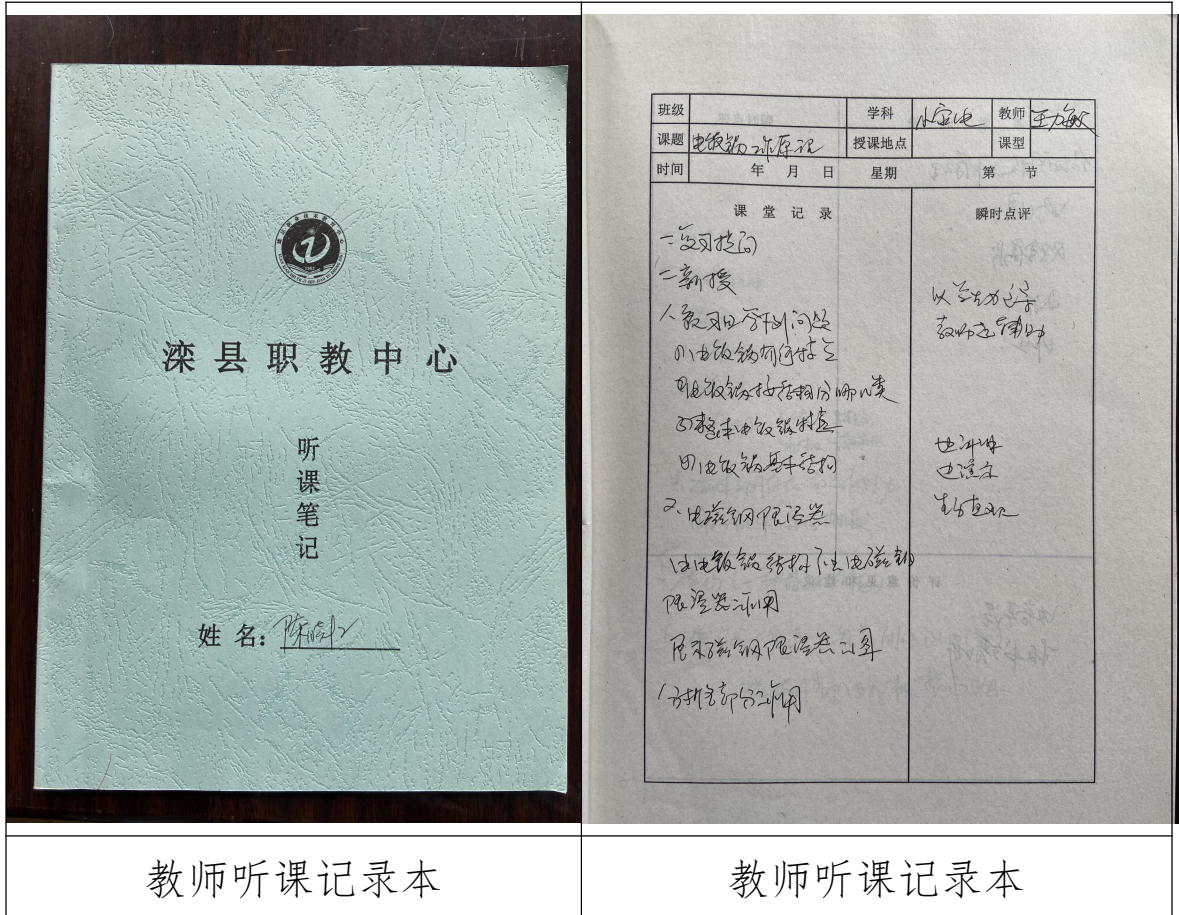 滦县职教中心
听课笔记
姓 名:
班级 学科 小家电 教师 王力敏
课题 电饭锅工作原理 授课地点 课型
时间 年 月 日 星期 第 节
课 堂 记 录
一复习提问
二新授
1、预习回答下列问题
(1)电饭锅有何特点
(2)电饭锅按结构分哪几类
(3)整体电饭锅特点
(4)电饭锅基本结构
2、电磁钢限温器
由电饭锅结构引出电磁钢
限温器作用
展示磁钢限温器工图
1分析各部分作用
瞬时点评
以学生为主导
教师为辅助
边讲解
边演示
生动直观
教师听课记录本
教师听课记录本